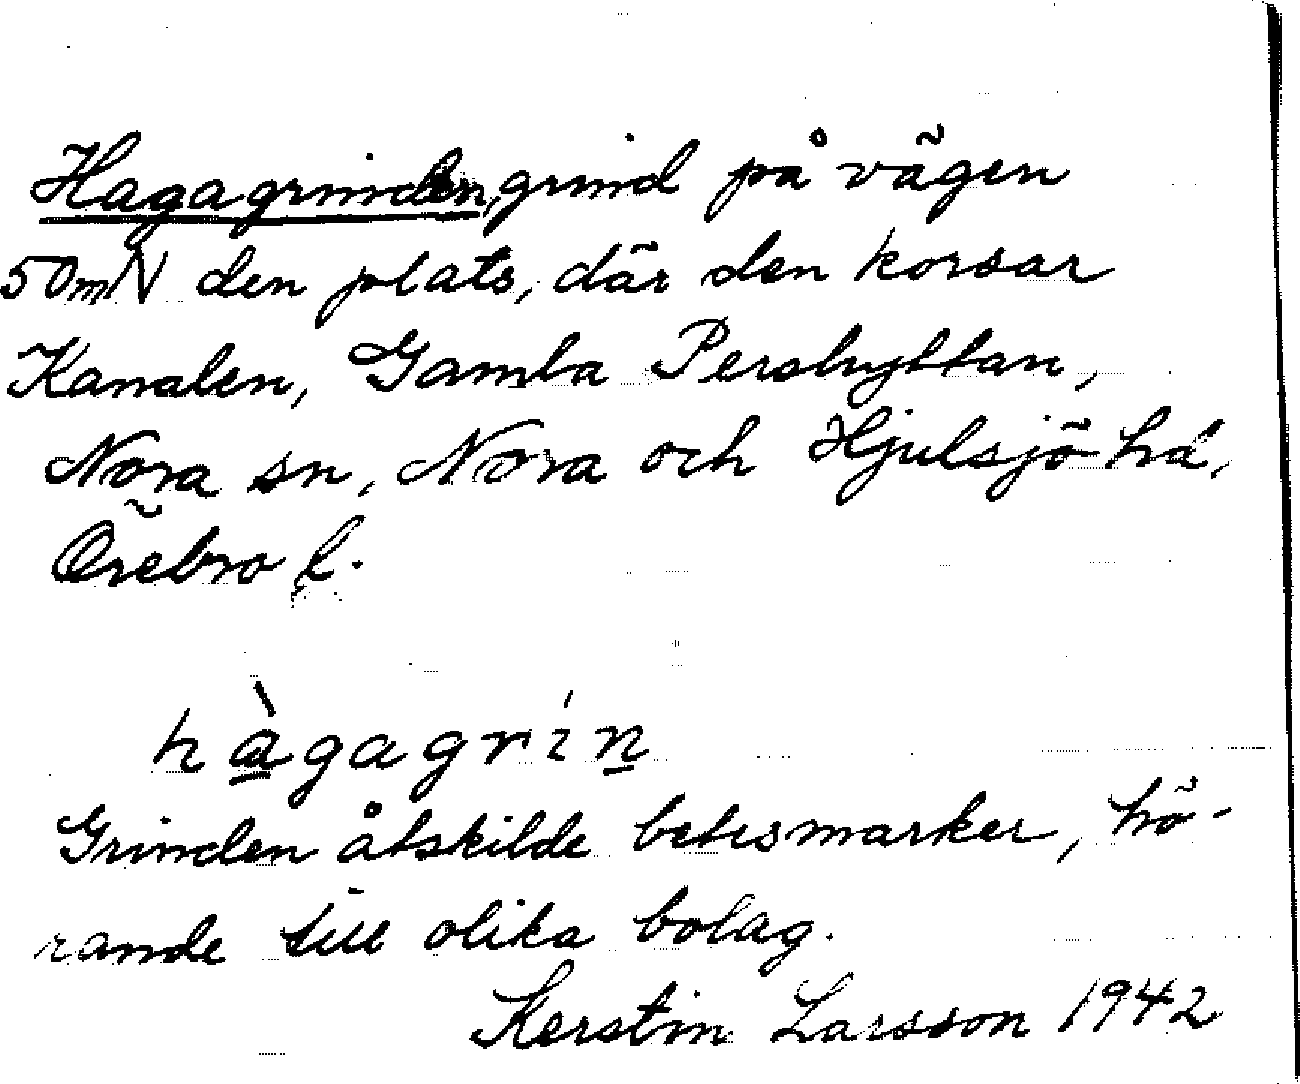 Hagagrinden, grind på vägen
50 m N den plats, där den korsar
Kanalen, Gamla Pershyttan,
Nora sn, Nora och Hjulsjö hd,
Örebro l.
hàgagrín
Grinden åtskilde betesmarker, hö-
rande till olika bolag.
Kerstin Larsson 1942